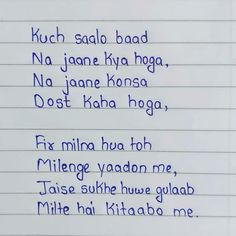 Kuch saalo baad
Na jaane Kya hoga,
Na jaane Konsa
Dost Kaha hoga,
Fir milna hua toh
Milenge yaadon me,
Jaise sukhe huwe gulaab
Milte hai Kitaabo me.